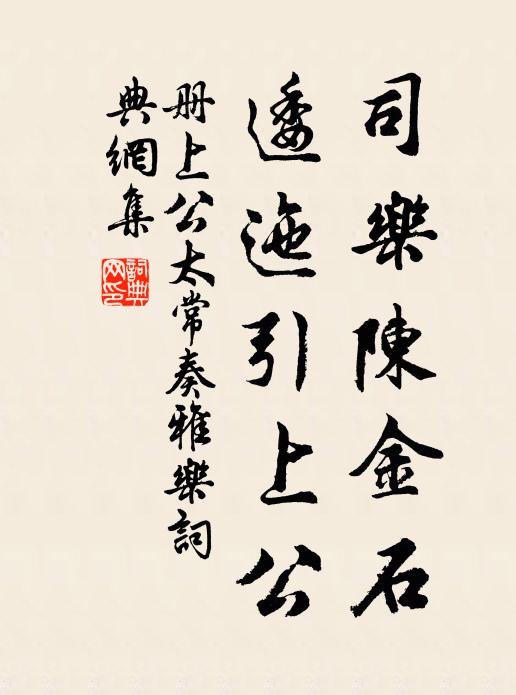 司樂陳金石
逶迤引上公
册上公太常奏雅樂詞
典網集
詞典
网印